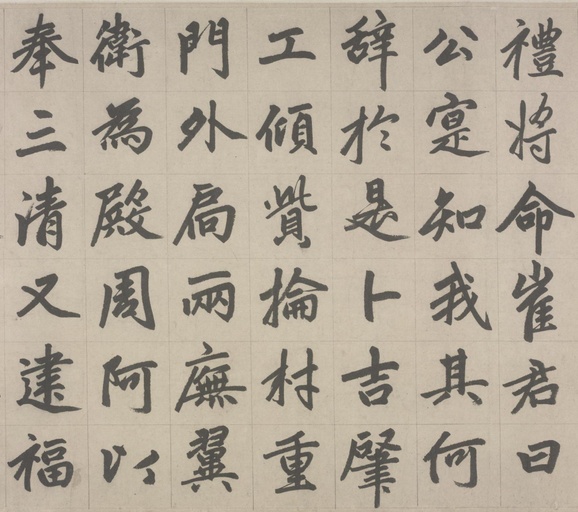 禮將命崔君曰
公寔知我其何
辭於是卜吉肈
工傾貲掄材重
門外局兩廡翼
衛為殿周阿以
奉三清又建福